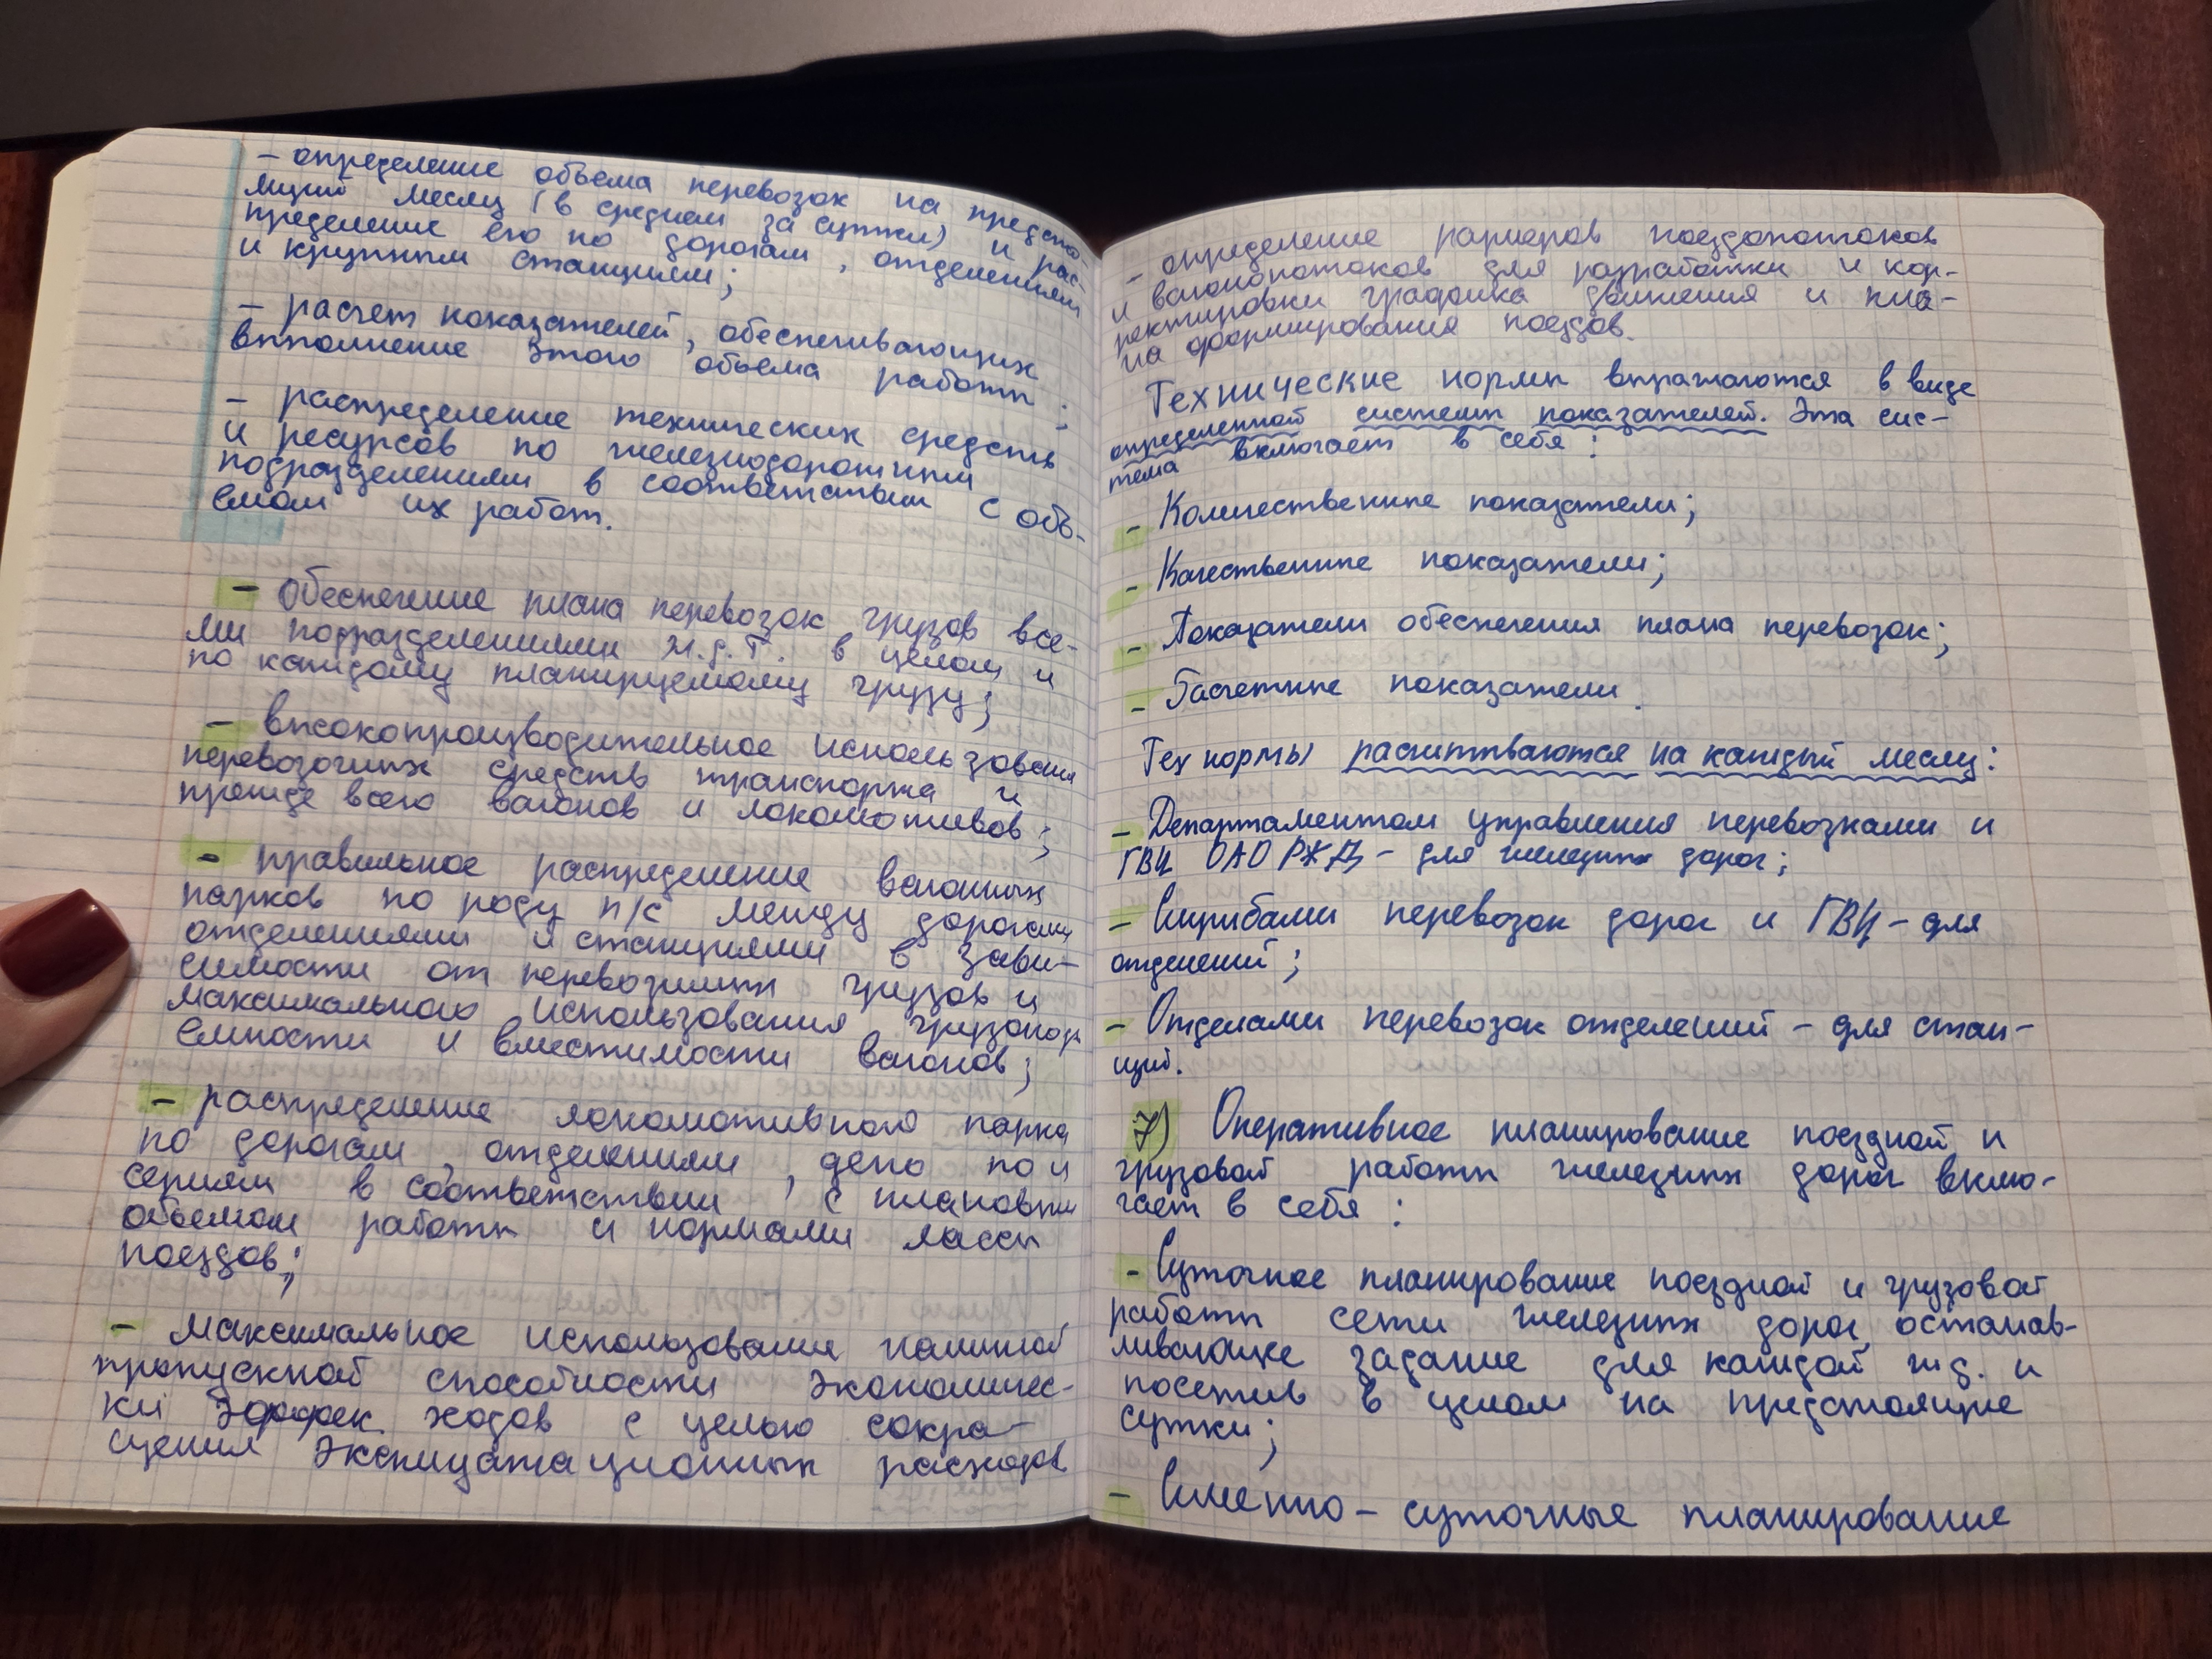 - определение объема перевозок на предсто-
ящий месяц (в среднем за сутки) и рас-
пределение его по дорогам, отделениям
и крупным станциям;
- расчет показателей, обеспечивающих
выполнение этого объема работы;
- распределение технических средств
и ресурсов по железнодорожным
подразделениям в соответствии с объ-
емом их работ.
- Обеспечение плана перевозок грузов все-
ми подразделениями ж.д.т. в целом и
по каждому планируемому грузу;
- высокопроизводительное использование
перевозочных средств транспорта и
прежде всего вагонов и локомотивов;
- правильное распределение вагонных
парков по роду п/с между дорогами
отделениями и станциями в зави-
симости от перевозимых грузов и
максимального использования грузопод
ъемности и вместимости вагонов;
- распределение локомотивного парка
по дорогам, отделениям, депо по и
сериям в соответствии, с плановым
объемом работы и нормами массы
поездов;
- максимальное использование наличной
пропускной способности экономичес-
ки эффек. ходов с целью сокра-
щения эксплуатационных расходов
- определение размеров поездопотоков
и вагонопотоков для разработки и кор-
ректировки графика движения и пла-
на формирования поездов.
Технические нормы выражаются в виде
определенной системы показателей. Эта сис-
тема включает в себя:
- Количественные показатели;
- Качественные показатели;
- Показатели обеспечения плана перевозок;
- Расчетные показатели.
Тех нормы расчитываются на каждый месяц:
- Департаментом управления перевозками и
ГВЦ ОАО РЖД - для железных дорог;
- Службами перевозок дорог и ГВЦ - для
отделений;
- Отделами перевозок отделений - для стан-
ций.
7) Оперативное планирование поездной и
грузовой работы железных дорог вклю-
чает в себя:
- Суточное планирование поездной и грузовой
работы сети железных дорог останав-
ливающие задание для каждой жд. и
посетив в целом на предстоящие
сутки;
- Сменно - суточные планирование